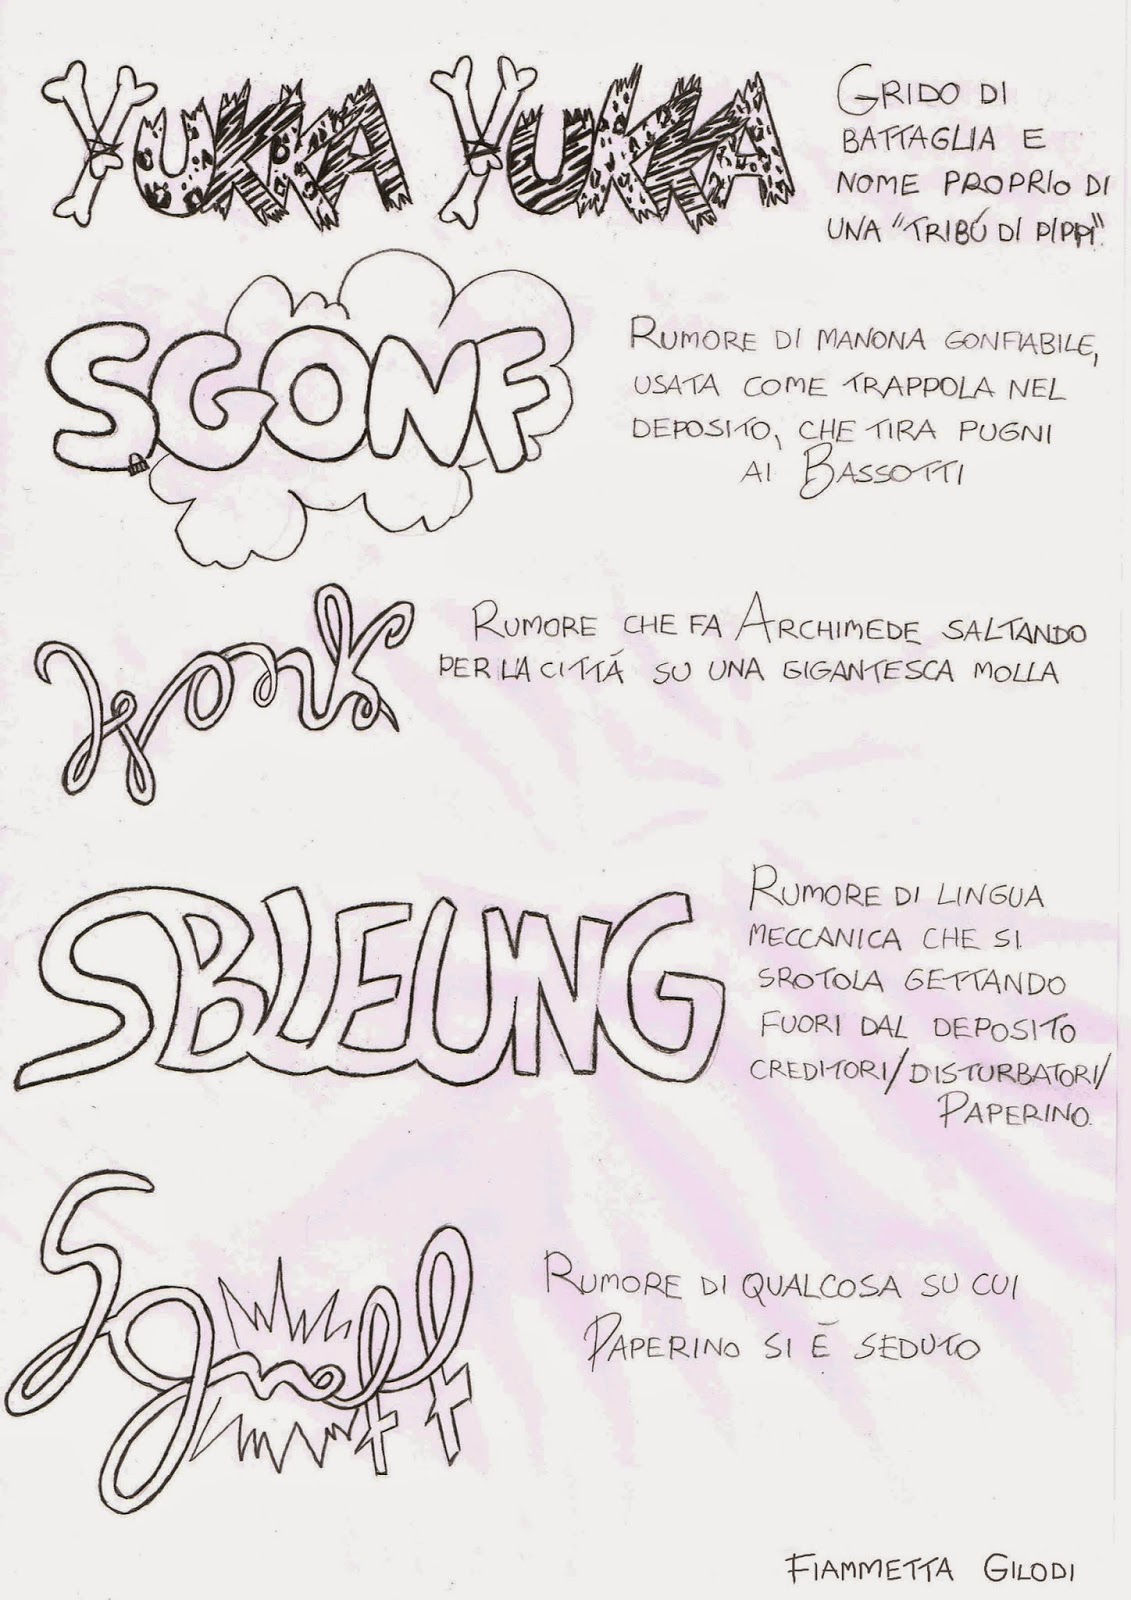 YUKKA YUKKA
GRIDO DI
BATTAGLIA E
NOME PROPRIO DI
UNA "TRIBÚ DI PIPPI".
SGONF
RUMORE DI MANONA GONFIABILE,
USATA COME TRAPPOLA NEL
DEPOSITO, CHE TIRA PUGNI
AI BASSOTTI
wonk
RUMORE CHE FA ARCHIMEDE SALTANDO
PER LA CITTÁ SU UNA GIGANTESCA MOLLA
SBLEUNG
RUMORE DI LINGUA
MECCANICA CHE SI
SROTOLA GETTANDO
FUORI DAL DEPOSITO
CREDITORI/DISTURBATORI/
PAPERINO.
RUMORE DI QUALCOSA SU CUI
PAPERINO SI É SEDUTO
FIAMMETTA GILODI